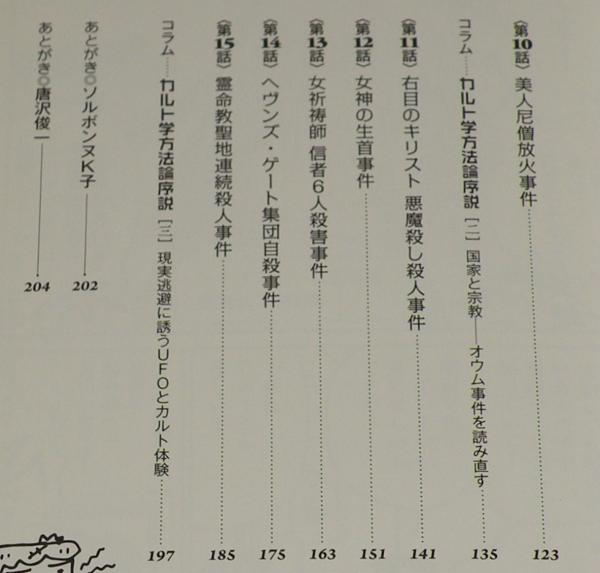 〈第10話〉美人尼僧放火事件 123
コラム……カルト学方法論序説［二］国家と宗教――オウム事件を読み直す 135
〈第11話〉右目のキリスト 悪魔殺し殺人事件 141
〈第12話〉女神の生首事件 151
〈第13話〉女祈祷師 信者6人殺害事件 163
〈第14話〉ヘヴンズ・ゲート集団自殺事件 175
〈第15話〉霊命教聖地連続殺人事件 185
コラム……カルト学方法論序説［三］現実逃避に誘うUFOとカルト体験 197
あとがき◎ソルボンヌK子 202
あとがき◎唐沢俊一 204